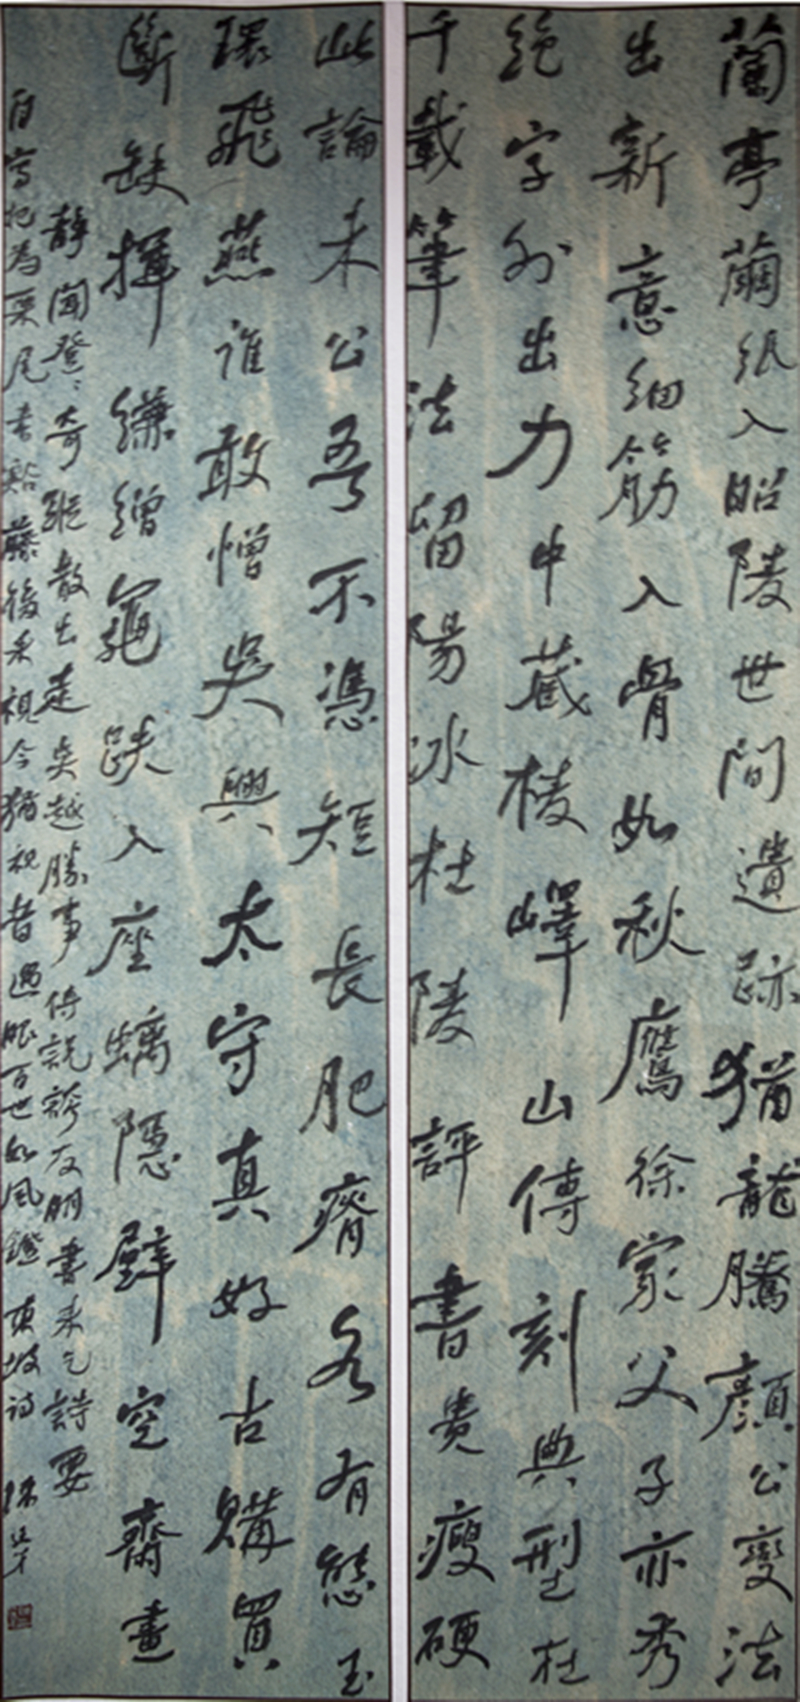 蘭亭繭紙入昭陵世間遺跡猶龍騰顏公變法
出新意細筋入骨如秋鷹徐家父子亦秀
絕字外出力中藏棱嶧山傳刻典型在
千載筆法留陽冰杜陵評書貴瘦硬
此論未公吾不憑短長肥瘠各有態玉
環飛燕誰敢憎吳興太守真好古購買
斷缺揮縑繒龜趺入座螭隱壁空齋晝
靜聞登登奇蹤散出走吳越勝事傳說誇友朋書來乞詩要
自寫把為栗尾書谿藤後來視今猶視昔過眼百世如風鐙東坡詩